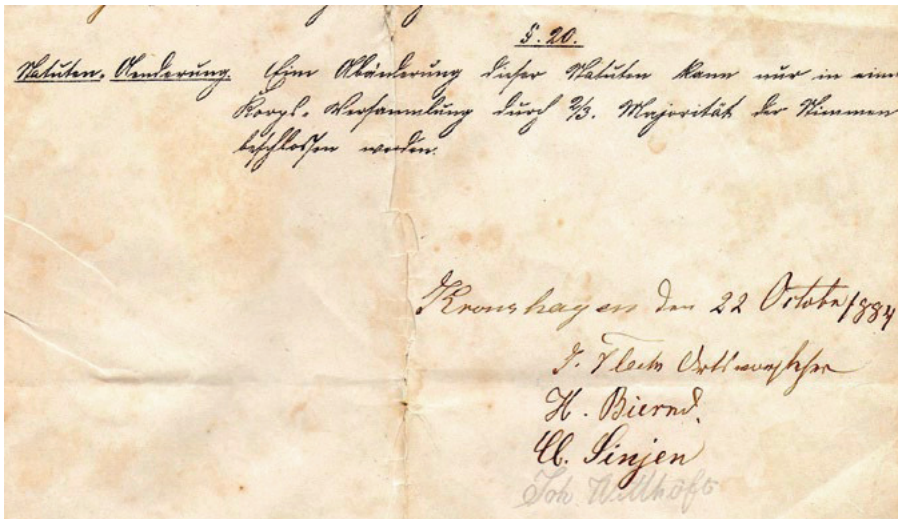 §. 20.
Statuten-Aenderung. Eine Abänderung dieser Statuten kann nur in eine
Korps-Versammlung durch 2/3. Majorität der Stimmen
beschlossen werden.
Kronshagen den 22 October 1884
J. Ortsvorsteher
H. Biernd.
Cl. Sinjen
Joh. Willhöft